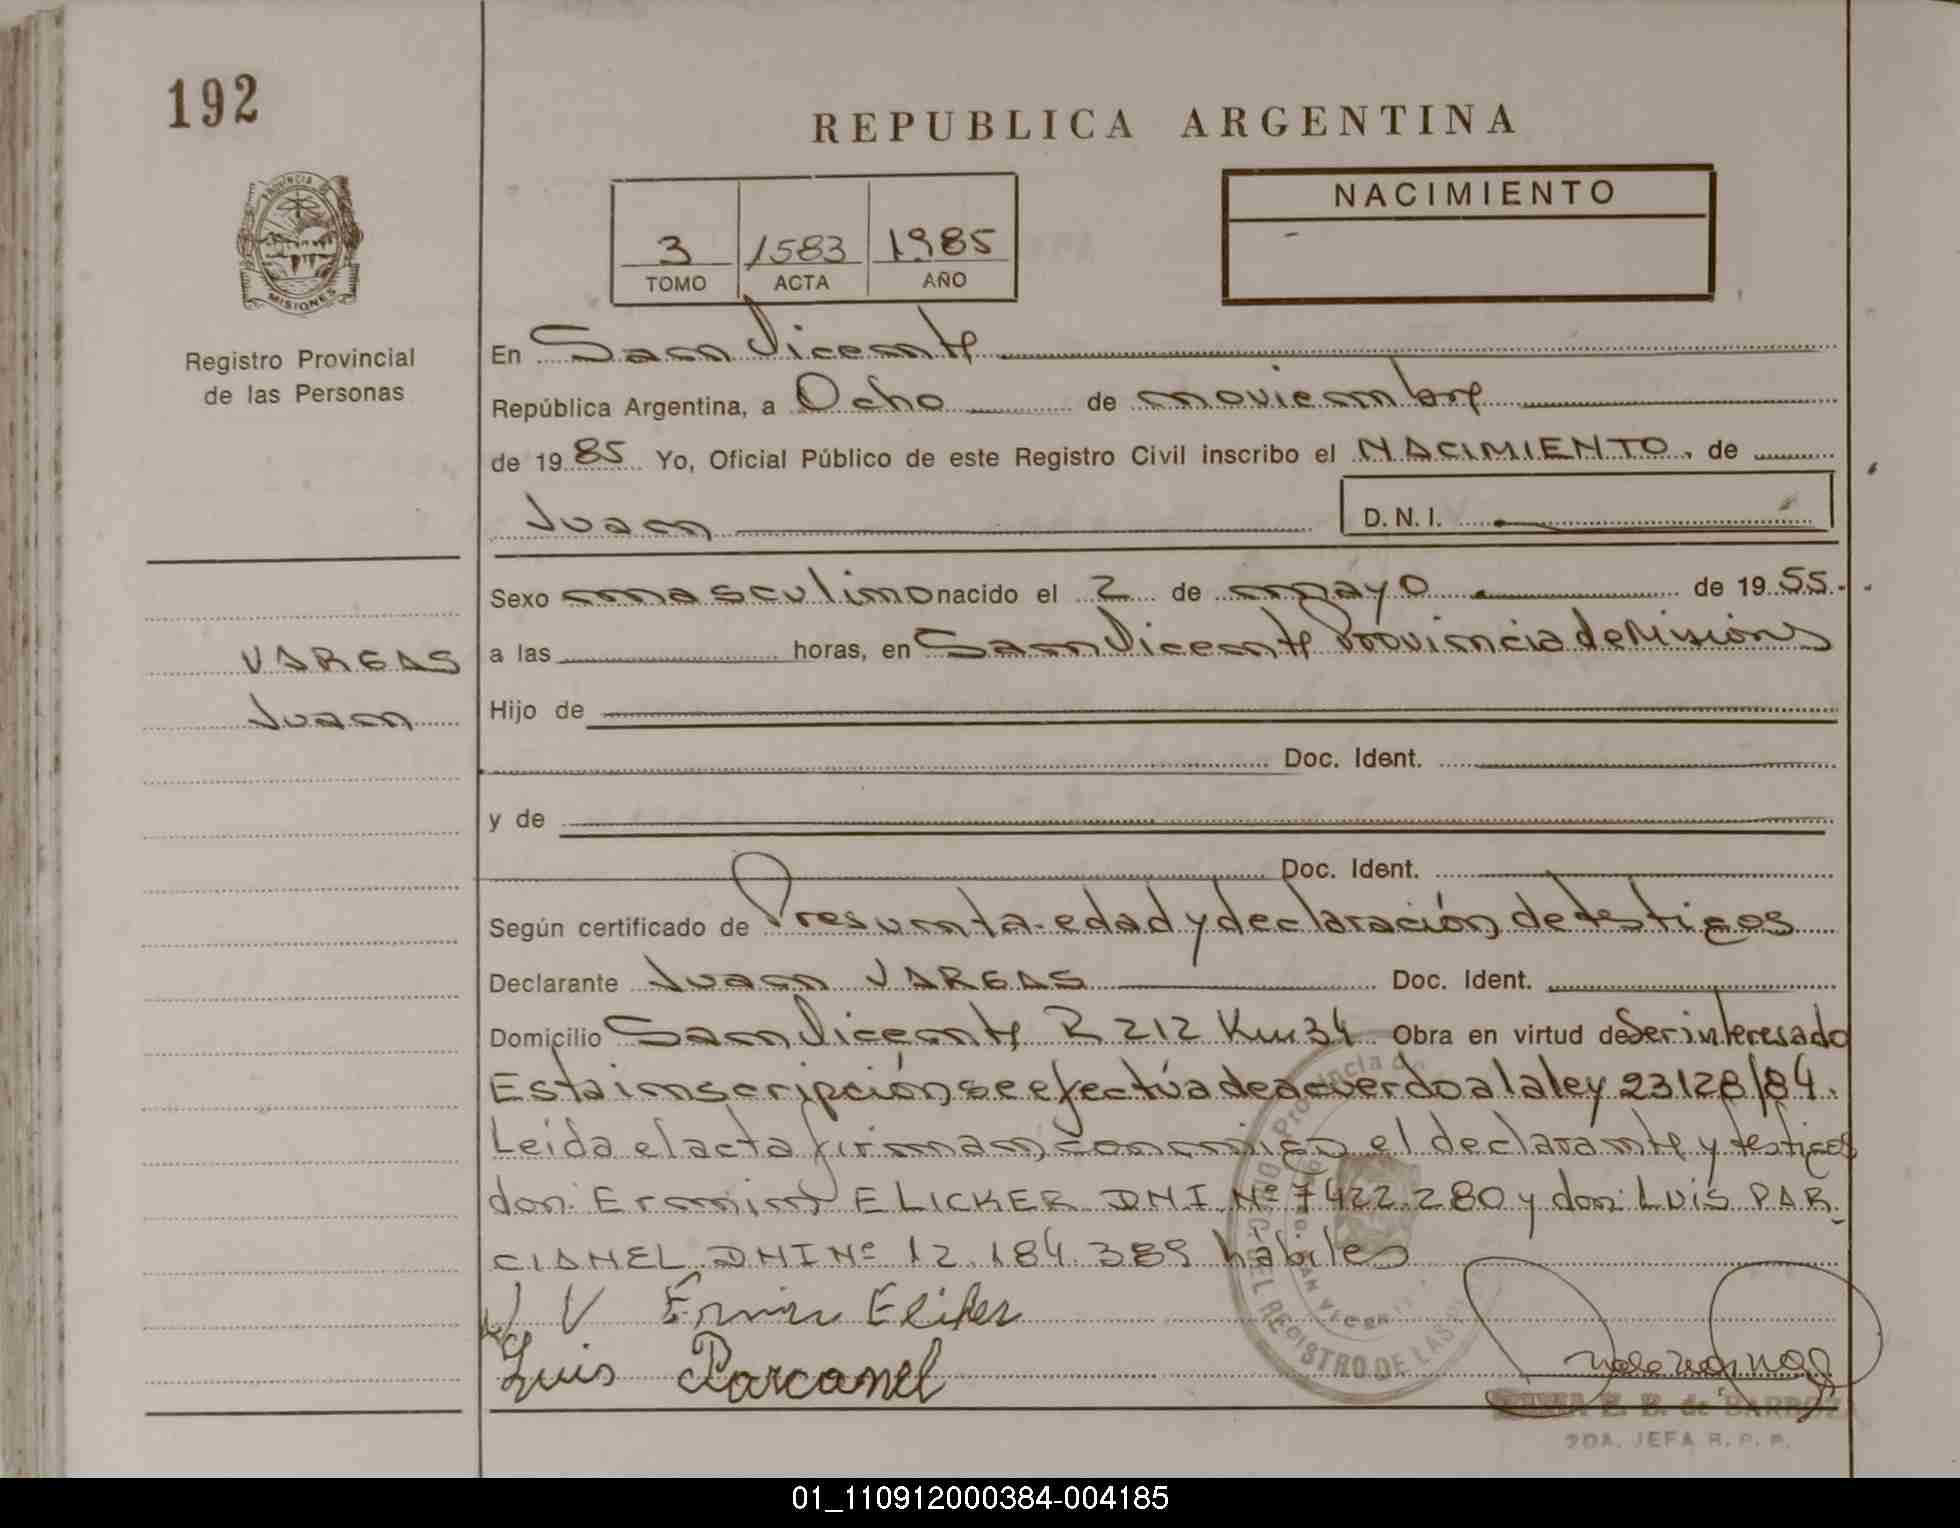 192
REPUBLICA ARGENTINA
PROVINCIA DE
MISIONES
Registro Provincial
de las Personas
3 1583 1985
TOMO ACTA AÑO
NACIMIENTO
En San Vicente
República Argentina, a Ocho de noviembre
de 1985 Yo, Oficial Público de este Registro Civil inscribo el NACIMIENTO, de
Juan D.N.I.
Sexo masculino nacido el 2 de mayo de 1955.
VARGAS
Juan
a las horas, en San Vicente Provincia de Misiones
Hijo de
Doc. Ident.
y de
Doc. Ident.
Según certificado de Presunta edad y declaración de testigos
Declarante Juan VARGAS Doc. Ident.
Domicilio San Vicente R 212 Km 34 Obra en virtud de Ser interesado
Esta inscripción se efectúa de acuerdo a la ley 23128/84.
Leída el acta firman conmigo el declarante y testigos
don: Ermin ELICKER DNI Nº 7422.280 y don: LUIS PAR-
CIANEL DNI Nº 12.184.389 hábiles
J V Ermin Eliker
Luis Parcanel
E. B. de BARROZA
2DA. JEFA R. P. P.
REGISTRO DE LAS
SAN VICENTE
01_110912000384-004185